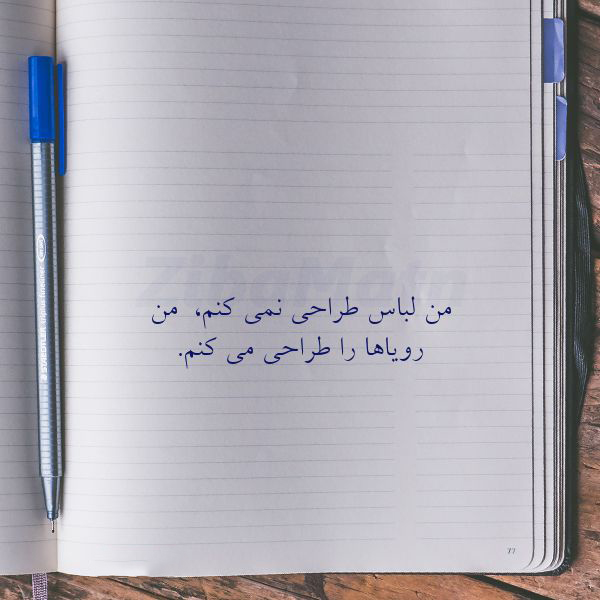 ZibaMatn
من لباس طراحی نمی کنم، من
رویاها را طراحی می کنم.
STAEDTLER triplus fineliner
77